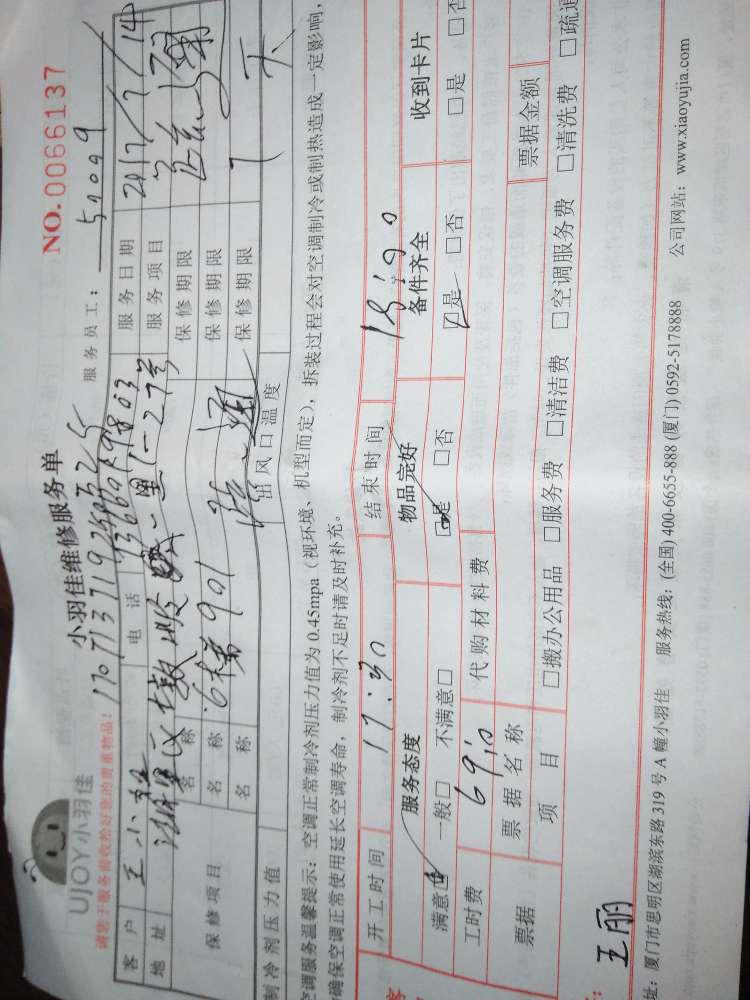 UJOY小羽佳
NO.0066137
小羽佳维修服务单
请您于服务前收拾好您的贵重物品!
服务员工:
客户 王小姐 电话 服务日期 2017/7/14
地址 服务项目
保修项目 名称 保修期限
名称 6栋901 保修期限
名称 保修期限
制冷剂压力值 出风口温度
空调服务温馨提示:空调正常制冷剂压力值为0.45mpa(视环境、机型而定),拆装过程会对空调制冷或制热造成一定影响,
确保空调正常使用延长空调寿命,制冷剂不足时请及时补充。
开工时间 17:30 结束时间 18:90
服务态度 物品完好 备件齐全 收到卡片
满意☑ 一般□ 不满意□ ☑是 □否 ☑是 □否 □是 □否
工时费 69.0 代购材料费
票据 票据名称 票据金额
项目 □搬办公用品 □服务费 □清洁费 □空调服务费 □清洗费 □疏通
王丽
址:厦门市思明区湖滨东路319号A幢小羽佳 服务热线:(全国)400-6655-888(厦门)0592-5178888 公司网站:www.xiaoyujia.com